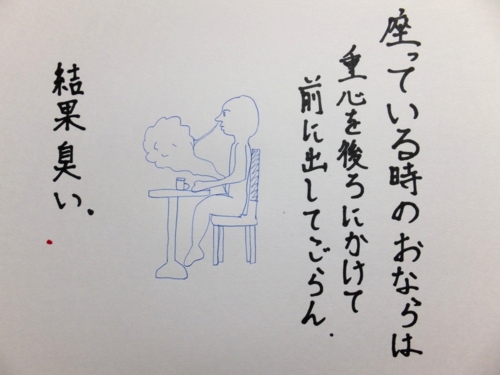 座っている時のおならは
重心を後ろにかけて
前に出してごらん.
結果臭い。